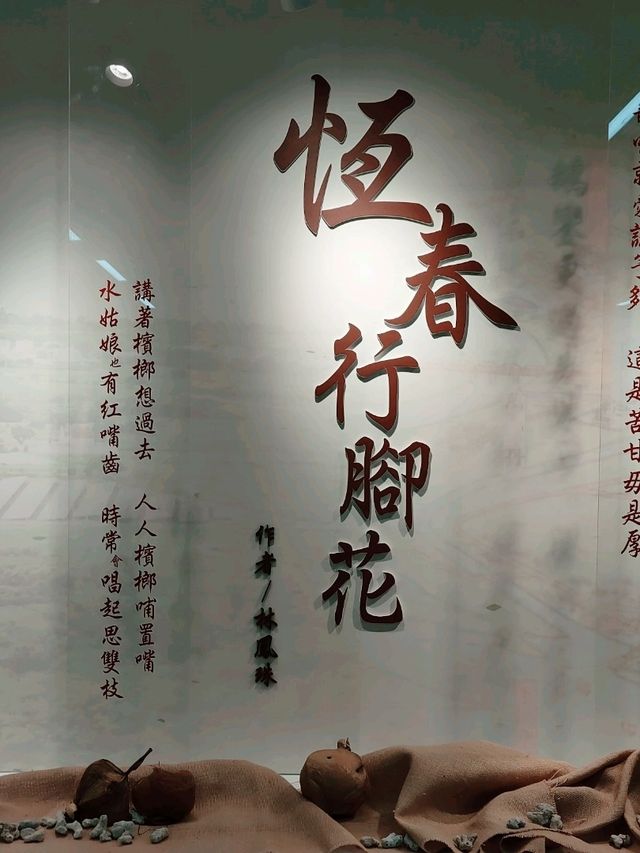 這是苦甘毋是
恆春行腳花
作者/林鳳珠
講著檳榔想過去 人人檳榔哺置嘴
水姑娘也有紅嘴齒 時常會唱起思雙枝